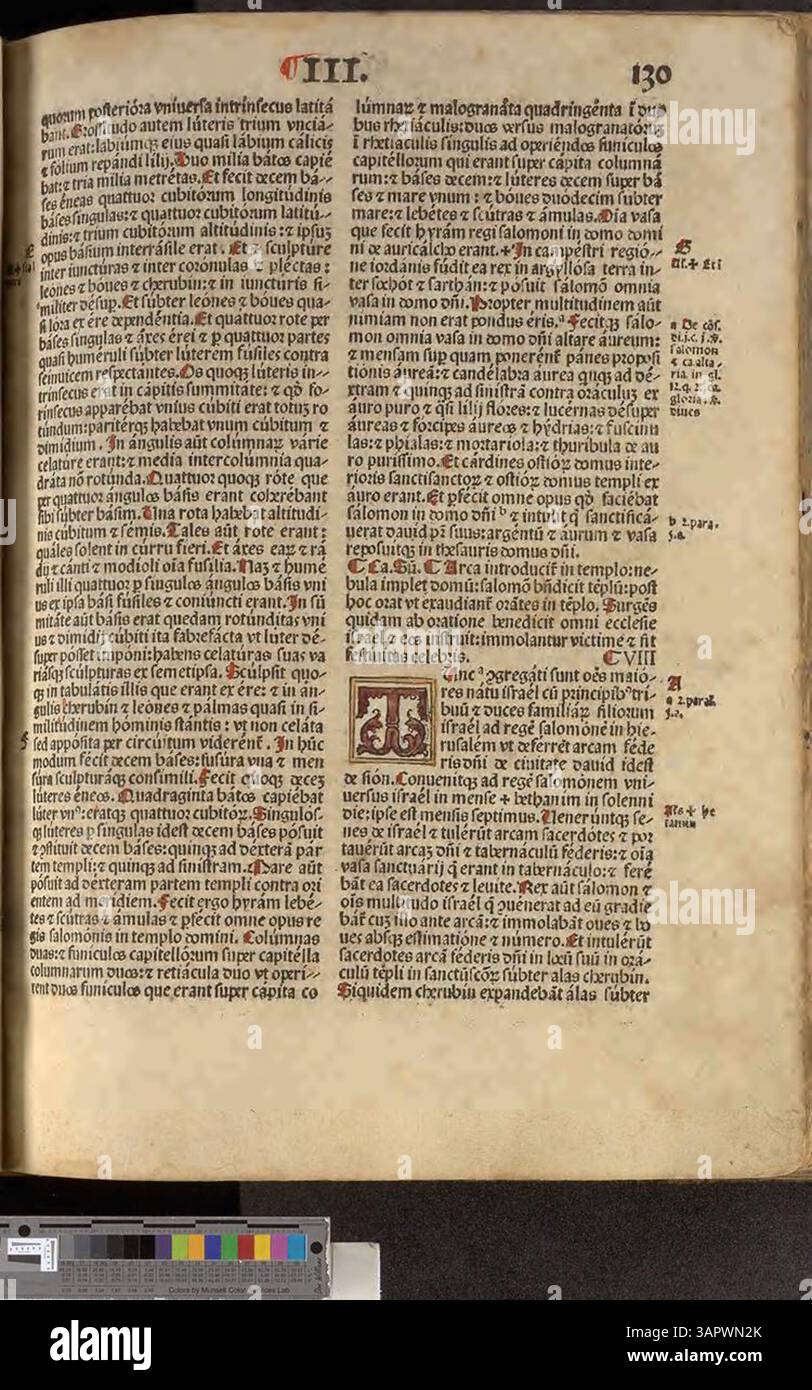 ¶III. 130
quorum posterióra vniuersa intrinsecus latitá
bant. Grossitudo autem lúteris trium vnciá-
rum erat: labiumqꝫ eius quasi lábium cálicis
⁊ fólium repándi lilij. Duo milia bátos capié
bat: ⁊ tria milia metrétas. Et fecit decem bá-
ses éneas quattuor cubitórum longitúdinis
báses singulas: ⁊ quattuor cubitórum latitú-
dinis: ⁊ trium cubitórum altitúdinis: ⁊ ipsuꝫ
opus básium interrásile erat. Et sculpture
inter iuncturas ⁊ inter corónulas ⁊ pléctas:
leónes ⁊ bóues ⁊ cherubin: ⁊ in iuncturis si-
militer désup. Et súbter leónes ⁊ bóues qua-
si lóra ex ére dependéntia. Et quattuor rote per
báses singulas ⁊ áxes érei ⁊ ꝑ quattuor partes
quasi huméruli súbter lúterem fúsiles contra
seinuicem respectantes. Os quoqꝫ lúteris in-
trinsecus erat in cápitis summitáte: ⁊ qd̓ fo-
rinsecus apparébat vnius cúbiti erat totuꝫ ro
túndum: paritérqꝫ habebat vnum cúbitum ⁊
dimidium. In ángulis aūt colúmnaꝝ várie
celatúre erant: ⁊ media intercolúmnia qua-
dráta nō rotúnda. Quattuor quoqꝫ róte que
per quattuor ángulos básis erant coherébant
sibi súbter básim. Una rota habébat altitúdi-
nis cúbitum ⁊ sémis. Tales aūt rote erant:
quáles solent in cúrru fieri. Et áxes eaꝝ ⁊ rá
dij ⁊ cánti ⁊ modioli oĩa fusilia. Naꝫ ⁊ humé
ruli illi quattuor: ꝑ singulos ángulos básis vni
us ex ipsa bási fúsiles ⁊ coniúncti erant. In sū
mitáte aūt básis erat quedam rotúnditas vni
us ⁊ dimidij cúbiti ita fabrefácta vt lúter dé-
super pósset impóni: habens celatúras suas va
riásqꝫ sculptúras ex semetipsa. Sculpsit quo-
qꝫ in tabulátis illis que erant ex ére: ⁊ in án-
gulis cherubin ⁊ leónes ⁊ palmas quasi in si-
militúdinem hóminis stántis: vt non celáta
sed appósita per circúitum viderēnt̄. In hūc
modum fécit décem báses: fusúra vna ⁊ men
súra sculpturáqꝫ consimili. Fecit quoqꝫ deceꝫ
lúteres éneos. Quadraginta bátos capiébat
lúter vnꝰ: erátqꝫ quattuor cubitóꝝ. Singulós-
qꝫ lúteres ꝑ singulas idest decem báses pósuit
⁊ ꝯstituit decem báses: quinqꝫ ad déxterā pár
tem templi: ⁊ quinqꝫ ad sinistram. Mare aūt
pósuit ad déxteram partem templi contra ori
entem ad meridiem. Fecit ergo hyrám lebé-
tes ⁊ scútras ⁊ ámulas ⁊ ꝑfécit omne opus re
gis salomónis in templo domini. Colúmnas
duas: ⁊ funiculos capitellórum super capitélla
columnarum duos: ⁊ retiácula duo vt operi-
rent duos funículos que erant super cápita co
lúmnaꝝ ⁊ malogranáta quadringénta ī duo
bus rhetiáculis: duos versus malogranatóruꝫ
ī rhetiaculis singulis ad operiéndos funículos
capitéllorum qui erant super cápita columná
rum: ⁊ báses decem: ⁊ lúteres decem super bá
ses ⁊ mare vnum: ⁊ bóues duódecim súbter
mare: ⁊ lebétes ⁊ scútras ⁊ ámulas. Oĩa vasa
que fecit hyrám regi salomoni in domo domi
ni de auricálcho erant. + In campéstri regió-
ne iordanis fúdit ea rex in argyllósa terra in-
ter sochót ⁊ sarthán: ⁊ pósuit salomō omnia
vasa in domo dñi. Propter multitúdinem aūt
nimiam non erat pondus éris. ᵃ Fecitqꝫ sálo-
mon omnia vasa in domo dñi altare áureum:
⁊ mensam sup̄ quam ponerēnt̄ pánes proposi
tiónis aúreā: ⁊ candélabra aurea qnqꝫ ad dé-
xtram ⁊ quinqꝫ ad sinistrā contra oráculuꝫ ex
auro puro ⁊ qsi lilij flóres: ⁊ lucérnas désuper
áureas ⁊ forcipes áureos ⁊ hýdrias: ⁊ fuscinu
las: ⁊ phialas: ⁊ mortariola: ⁊ thuribula de au
ro purissimo. Et cárdines ostióꝝ domus inte-
rioris sanctisanctoꝝ ⁊ ostióꝝ domus templi ex
áuro erant. Et ꝑfécit omne opus qd̓ faciébat
sálomon in domo dñi ᵇ ⁊ intulit q̄ sanctificá-
uerat dauid pr̄ suus: argéntū ⁊ aurum ⁊ vasa
reposuitqꝫ in thesauris domus dñi.
¶ Ca. Sū. ¶ Arca introducit̄ in templo: ne-
bula implet domū: salomō bn̄dicit tēplū: post
hoc orat vt exaudiant̄ orātes in tēplo. Surgēs
quidam ab oratione benedicit omni ecclesie
israel ⁊ eos instruit: immolantur victime ⁊ fit
festiuitas celebris. ¶VIII
Tunc ᵃ ꝯgregáti sunt oēs maió-
res nátu israél cū principibꝰ tri-
buū ⁊ duces familiáꝝ filiorum
israél ad regé salomónē in hie-
rusalém vt deferrēt arcam féde
ris dñi de ciuitate dauid idest
de sión. Conuenitqꝫ ad regē salomónem vni-
uersus israél in mense + bethanim in solenni
die: ipse est mensis septimus. Uenerúntqꝫ se-
nes de israél ⁊ tulérūt arcam sacerdótes ⁊ por
tauérūt arcaꝫ dñi ⁊ tabernáculū féderis: ⁊ oĩa
vasa sanctuárij q̄ erant in tabernáculo: ⁊ feré
bāt ea sacerdótes ⁊ leuite. Rex aūt sálomon ⁊
oīs multitudo israél q̄ ꝯuénerat ad eū gradie
bat̄ cuꝫ illo ante arcā: ⁊ immolabāt oues ⁊ bo
ues absqꝫ estimatióne ⁊ número. Et intulérūt
sacerdotes arcā féderis dñi in locū suū in orá-
culū tēpli in sanctūscóꝝ súbter alas cherubin.
Siquidem cherubin expandebāt álas súbter
G
Al. + Eti
a De cōs.
di.j.c.j.ꝟ.
salomon
⁊ ca. alta-
ria. in gl.
gloria. ꝟ.
diues
b 2. para.
5. a.
A
a 2. paral.
5. a.
Als + be
tanim